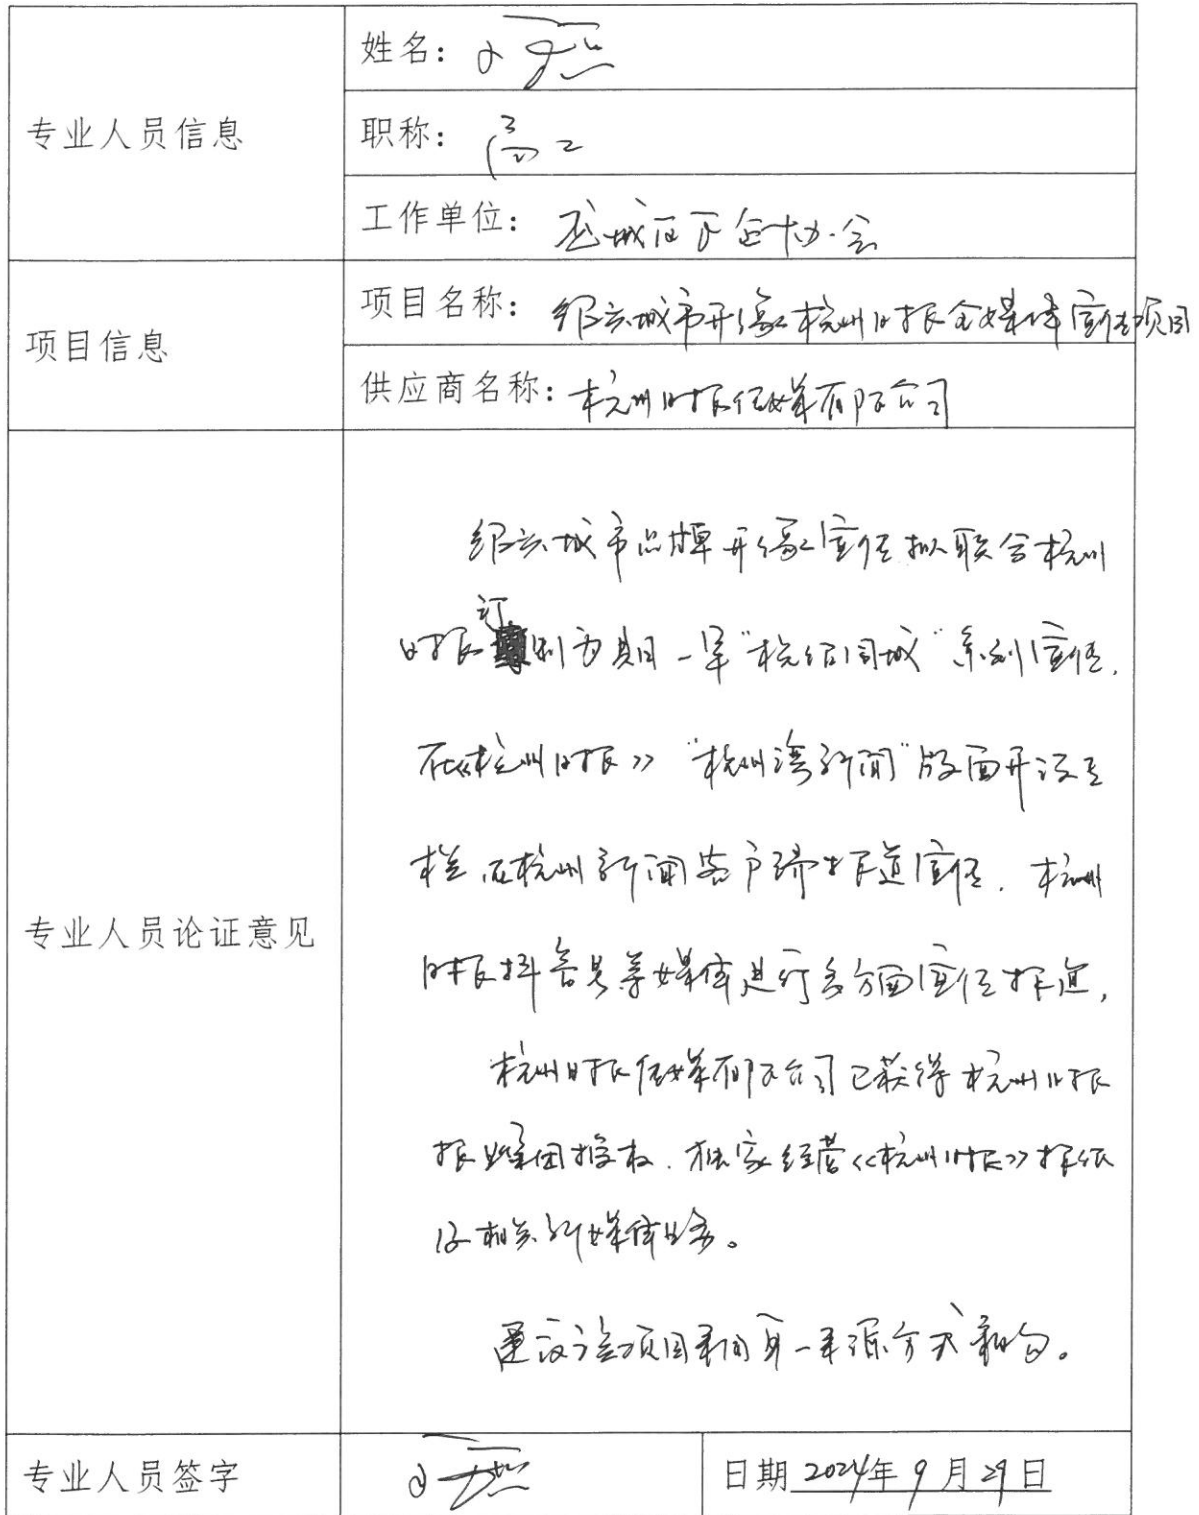 专业人员信息
姓名：
职称：高工
工作单位：越城区下企协会
项目信息
项目名称：绍兴城市形象杭州日报全媒体宣传项目
供应商名称：杭州日报传媒有限公司
专业人员论证意见
绍兴城市品牌形象宣传拟联合杭州
日报订制为期一年“杭绍同城”系列宣传，
在《杭州日报》“杭州湾新闻”版面开设专
栏，在杭州新闻客户端报道宣传，杭州
日报抖音号等媒体进行多方面宣传报道，
杭州日报传媒有限公司已获得杭州日报
报业集团授权，独家经营《杭州日报》报纸
及相关新媒体业务。
建议该项目采用单一来源方式采购。
专业人员签字
日期 2024年9月29日